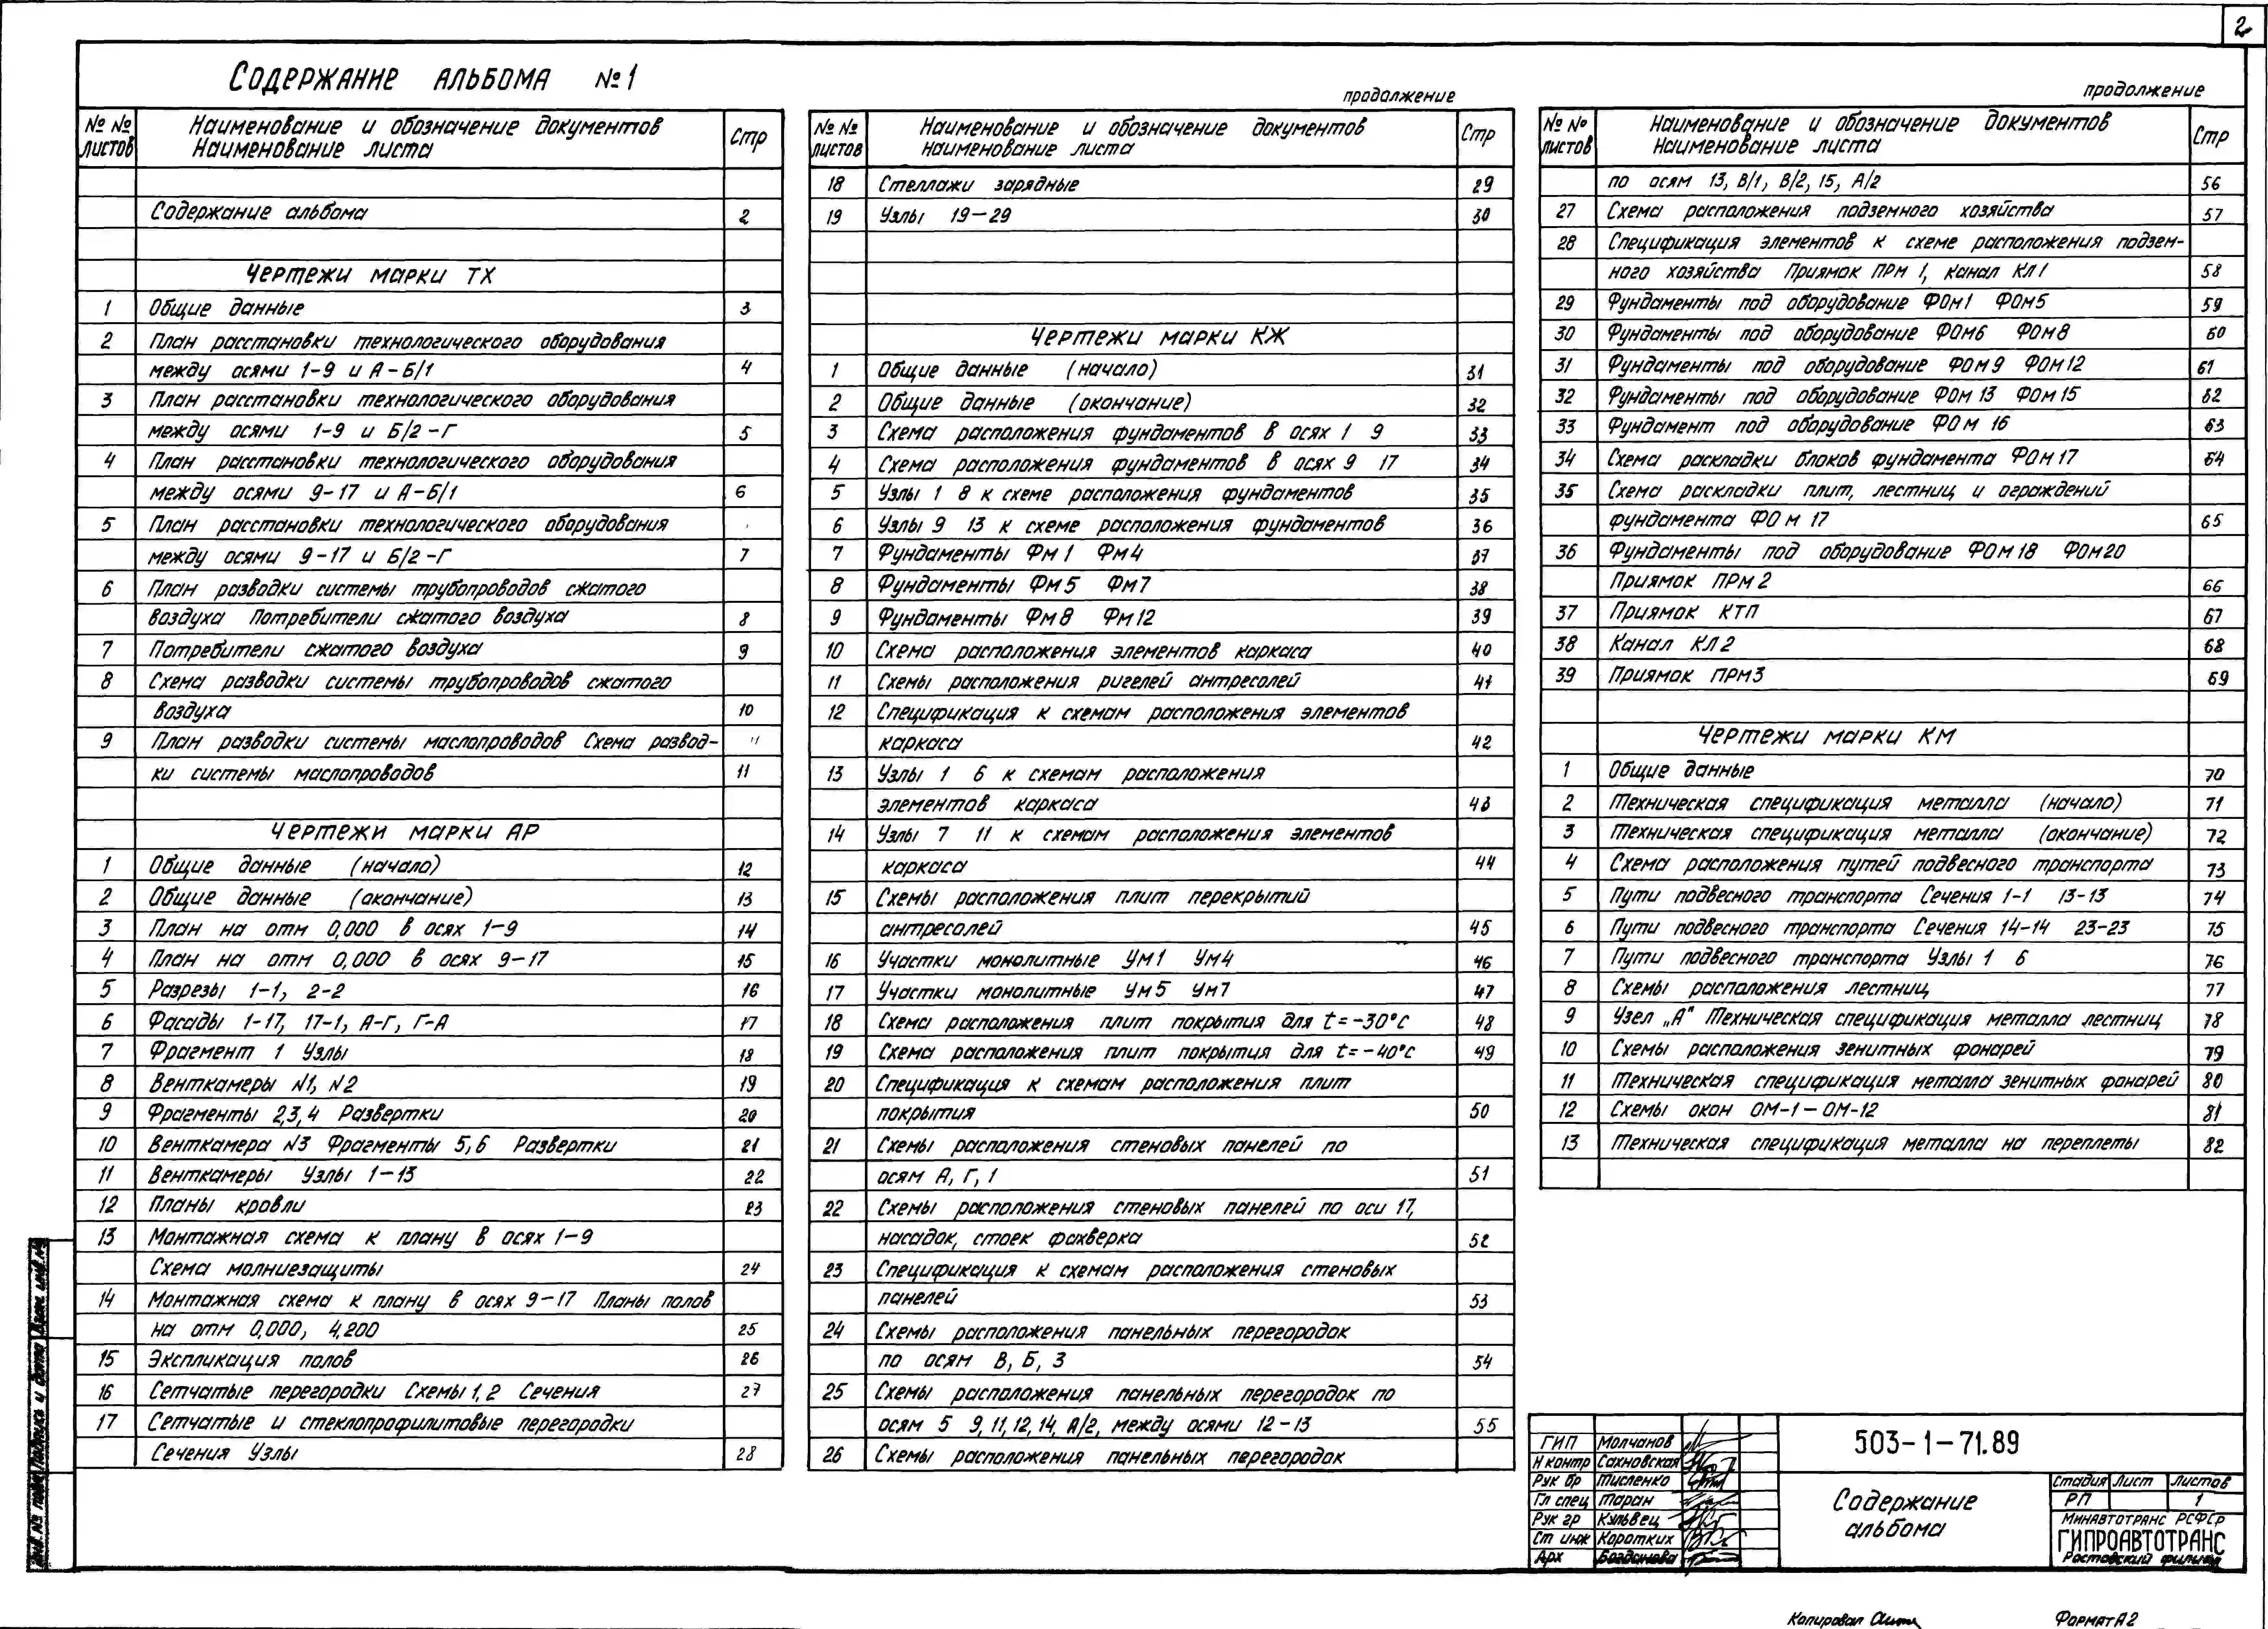 2
Содержание альбома №1
№ № листов Наименование и обозначение документов Наименование листа Стр
Содержание альбома 2
Чертежи марки ТХ
1 Общие данные 3
2 План расстановки технологического оборудования
между осями 1-9 и А-Б/1 4
3 План расстановки технологического оборудования
между осями 1-9 и Б/2-Г 5
4 План расстановки технологического оборудования
между осями 9-17 и А-Б/1 6
5 План расстановки технологического оборудования
между осями 9-17 и Б/2-Г 7
6 План разводки системы трубопроводов сжатого
воздуха Потребители сжатого воздуха 8
7 Потребители сжатого воздуха 9
8 Схема разводки системы трубопроводов сжатого
воздуха 10
9 План разводки системы маслопроводов Схема развод-
ки системы маслопроводов 11
Чертежи марки АР
1 Общие данные (начало) 12
2 Общие данные (окончание) 13
3 План на отм 0,000 в осях 1-9 14
4 План на отм 0,000 в осях 9-17 15
5 Разрезы 1-1, 2-2 16
6 Фасады 1-17, 17-1, А-Г, Г-А 17
7 Фрагмент 1 Узлы 18
8 Венткамеры N1, N2 19
9 Фрагменты 2,3,4 Развертки 20
10 Венткамера N3 Фрагменты 5,6 Развертки 21
11 Венткамеры Узлы 1-13 22
12 Планы кровли 23
13 Монтажная схема к плану в осях 1-9
Схема молниезащиты 24
14 Монтажная схема к плану в осях 9-17 Планы полов
на отм 0,000, 4,200 25
15 Экспликация полов 26
16 Сетчатые перегородки Схемы 1,2 Сечения 27
17 Сетчатые и стеклопрофилитовые перегородки
Сечения Узлы 28
продолжение
№ № листов Наименование и обозначение документов Наименование листа Стр
18 Стеллажи зарядные 29
19 Узлы 19-29 30
Чертежи марки КЖ
1 Общие данные (начало) 31
2 Общие данные (окончание) 32
3 Схема расположения фундаментов в осях 1 9 33
4 Схема расположения фундаментов в осях 9 17 34
5 Узлы 1 8 к схеме расположения фундаментов 35
6 Узлы 9 13 к схеме расположения фундаментов 36
7 Фундаменты Фм1 Фм4 37
8 Фундаменты Фм5 Фм7 38
9 Фундаменты Фм8 Фм12 39
10 Схема расположения элементов каркаса 40
11 Схемы расположения ригелей антресолей 41
12 Спецификация к схемам расположения элементов
каркаса 42
13 Узлы 1 6 к схемам расположения
элементов каркаса 43
14 Узлы 7 11 к схемам расположения элементов
каркаса 44
15 Схемы расположения плит перекрытий
антресолей 45
16 Участки монолитные Ум1 Ум4 46
17 Участки монолитные Ум5 Ум7 47
18 Схема расположения плит покрытия для t=-30°С 48
19 Схема расположения плит покрытия для t=-40°С 49
20 Спецификация к схемам расположения плит
покрытия 50
21 Схемы расположения стеновых панелей по
осям А, Г, 1 51
22 Схемы расположения стеновых панелей по оси 17,
насадок, стоек фахверка 52
23 Спецификация к схемам расположения стеновых
панелей 53
24 Схемы расположения панельных перегородок
по осям В, Б, 3 54
25 Схемы расположения панельных перегородок по
осям 5 9, 11, 12, 14, А/2, между осями 12-13 55
26 Схемы расположения панельных перегородок
продолжение
№ № листов Наименование и обозначение документов Наименование листа Стр
по осям 13, В/1, В/2, 15, А/2 56
27 Схема расположения подземного хозяйства 57
28 Спецификация элементов к схеме расположения подзем-
ного хозяйства Приямок ПРм 1, канал КЛ1 58
29 Фундаменты под оборудование ФОм1 ФОм5 59
30 Фундаменты под оборудование ФОм6 ФОм8 60
31 Фундаменты под оборудование ФОм9 ФОм12 61
32 Фундаменты под оборудование ФОм13 ФОм15 62
33 Фундамент под оборудование ФОм 16 63
34 Схема раскладки блоков фундамента ФОм17 64
35 Схема раскладки плит, лестниц и ограждений
фундамента ФОм 17 65
36 Фундаменты под оборудование ФОм18 ФОм20
Приямок ПРм2 66
37 Приямок КТП 67
38 Канал КЛ2 68
39 Приямок ПРм3 69
Чертежи марки КМ
1 Общие данные 70
2 Техническая спецификация металла (начало) 71
3 Техническая спецификация металла (окончание) 72
4 Схема расположения путей подвесного транспорта 73
5 Пути подвесного транспорта Сечения 1-1 13-13 74
6 Пути подвесного транспорта Сечения 14-14 23-23 75
7 Пути подвесного транспорта Узлы 1 6 76
8 Схемы расположения лестниц 77
9 Узел „А" Техническая спецификация металла лестниц 78
10 Схемы расположения зенитных фонарей 79
11 Техническая спецификация металла зенитных фонарей 80
12 Схемы окон ОМ-1-ОМ-12 81
13 Техническая спецификация металла на переплеты 82
ГИП Молчанов
Н контр Сахновская
Рук бр Тисленко
Гл спец Таран
Рук гр Кульвец
Ст инж Коротких
Арх Богданова
503-1-71.89
Содержание
альбома
Стадия Лист Листов
РП 1
Минавтотранс РСФСР
ГИПРОАВТОТРАНС
Ростовский филиал
Инв. № подл. Подпись и дата Взам. инв. №
Копировал
Формат А2